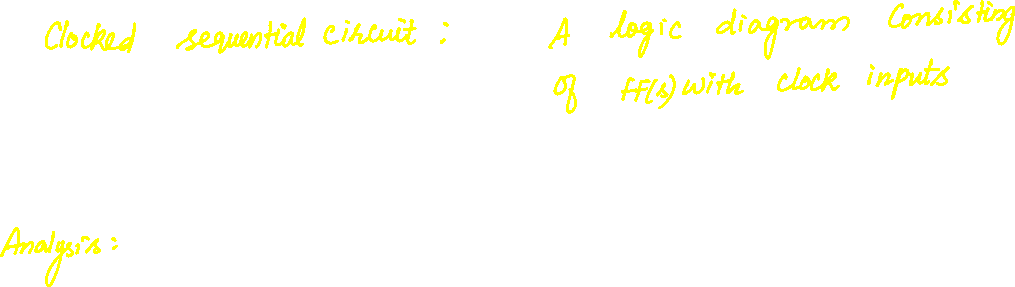 Clocked sequential circuit : A logic diagram Consisting
of FF(s) with clock inputs
Analysis :